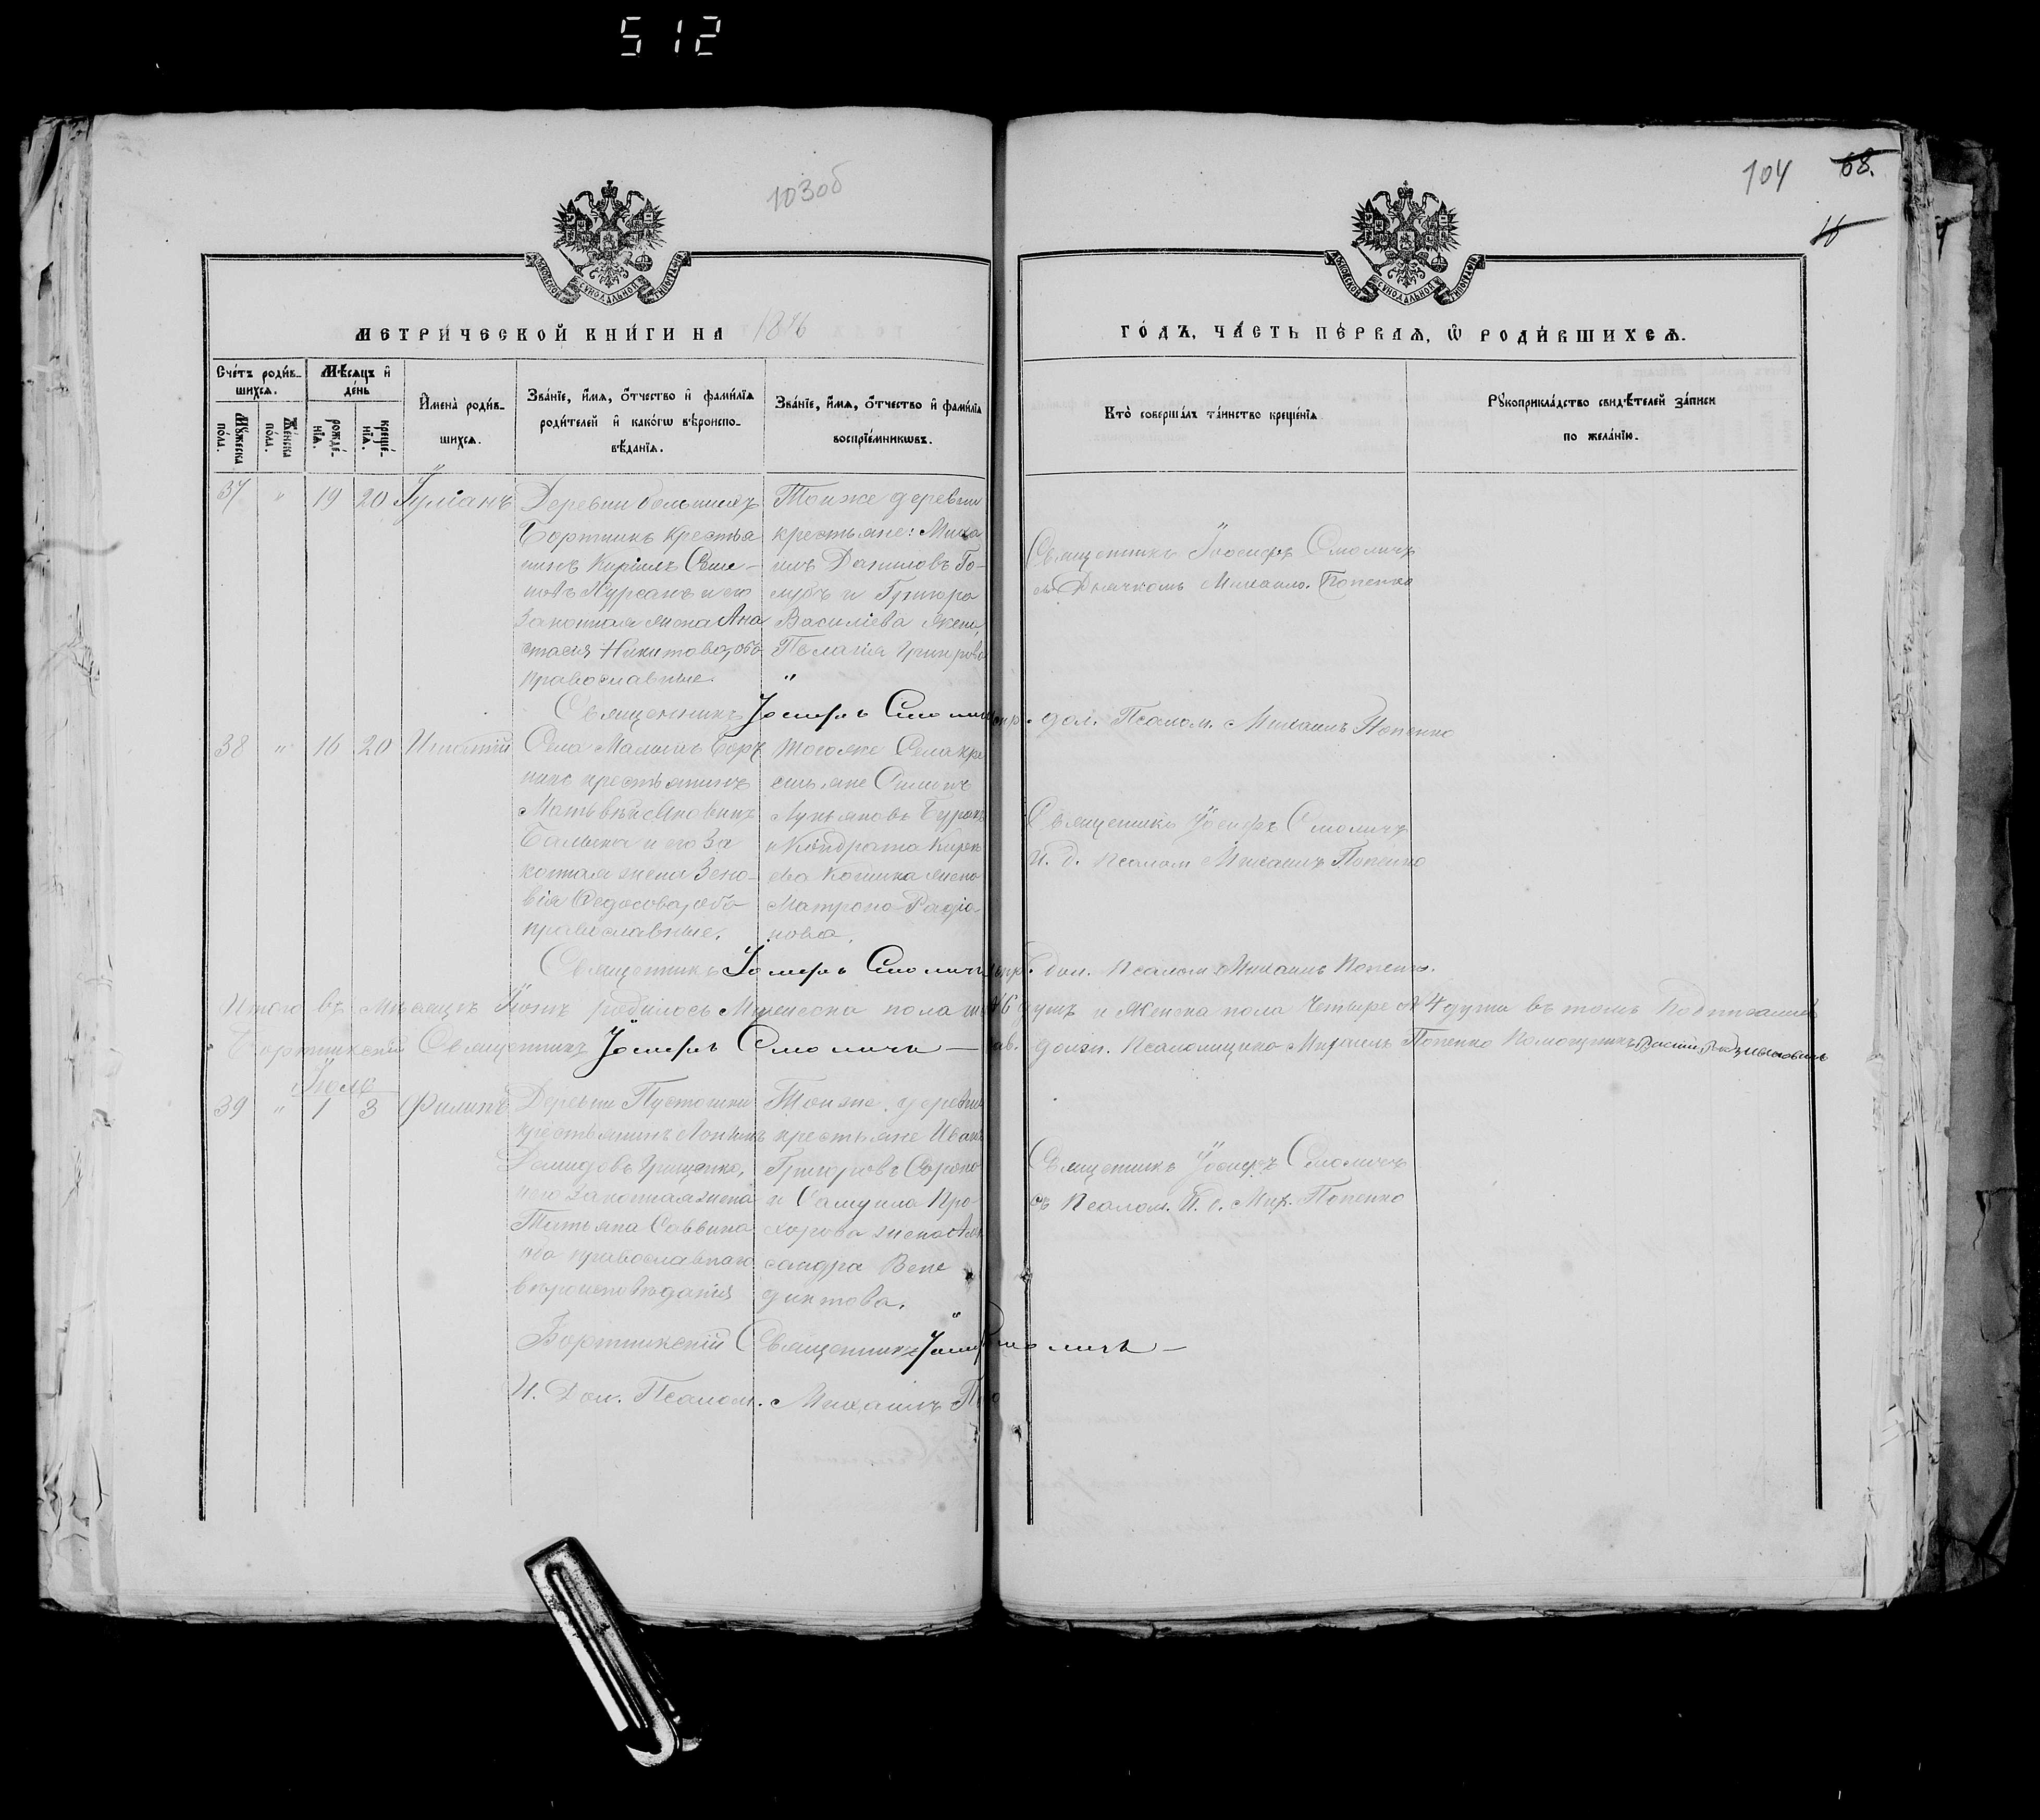 512
103об
104 68.
МОСКОВСКОЙ СѴНОДАЛЬНОЙ ТИПОГРАФІИ
МОСКОВСКОЙ СѴНОДАЛЬНОЙ ТИПОГРАФІИ
МЕТРИ́ЧЕСКОЙ КНИ́ГИ НА 1876
ГО́ДЪ, ЧА́СТЬ ПЕ́РВАЯ, Ѡ҆ РОДИ́ВШИХСЯ.
Сче́тъ роди́в-
шихся.
Мꙋ́жеска по́ла.
Же́нска по́ла.
Мѣ́сяцъ и҆
де́нь
рожде́-
нїя.
креще́-
нїя.
И҆мена̀ роди́в-
шихся.
Зва́нїе, и҆́мя, ѻ҆́тчество и҆ фами́лїя
роди́телей и҆ како́гѡ вѣроиспо-
вѣ́данїя.
Зва́нїе, и҆́мя, ѻ҆́тчество и҆ фами́лїя
воспрїе́мникѡвъ.
Кто̀ соверша́лъ та́инство креще́нїя
Рꙋкоприкла́дство свидѣ́телей за́писи
по жела́нїю.
37 " 19 20 Іуліанъ
Деревни большихъ
Бортникъ крестья
нинъ Кирилъ Симе-
новъ Курсакъ и его
законная жена Ана
стасия Никитова, оба
православные.
Тоиже деревни
крестьяне: Миха
илъ Даниловъ Го-
лубъ и Григора
Василіева жена
Пелагія Григрова
"
Священникъ Іосифъ Смоличъ
съ Дьячкомъ Михаило. Попенко
Священникъ Іосифъ Смоличъ испр. дол. Псалом. Михаилъ Попенко
38 " 16 20 Игнатій
Села Малыхъ Борт
никъ крестьянинъ
Матьвѣй
и его За
конная жена Зено-
вія Федосова, оба
православные.
Тогоже Села кре
стьяне Симонъ
Лукьяновъ Буракъ
и Кондрата
жена
Матрона Радіо-
нова.
Священникъ Іосифъ Смоличъ
И. д. псалом Михаилъ Попенко
Священникъ Іосифъ Смоличъ испр. дол. псалом Михаилъ Попенко.
Итого въ Мѣсяцѣ Іюнѣ родилось Мужеска пола 6 душъ и Женска пола Четыре 4 души въ томъ Подписались
Бортникскій Священникъ Іосифъ Смоличъ — должн. Псаломщика Михаилъ Попенко
Іюль
39 " 1 3 Филипъ
Деревни Пустошки
крестьянинъ Логинъ
Демидовъ Грищенко,
и его законная жена
Татьяна Саввина
оба православнаго
вѣроисповѣданія
Тоиже деревни
крестьяне Иванъ
Григоровъ Сороко
и Самуила Про-
хорова жена Алек
сандра Вене
диктова.
Священникъ Іосифъ Смоличъ
съ Псалом. И. д. Мих. Попенко
Бортникскій Священникъ Іосифъ Смоличъ —
И. Дол. Псалом. Михаилъ